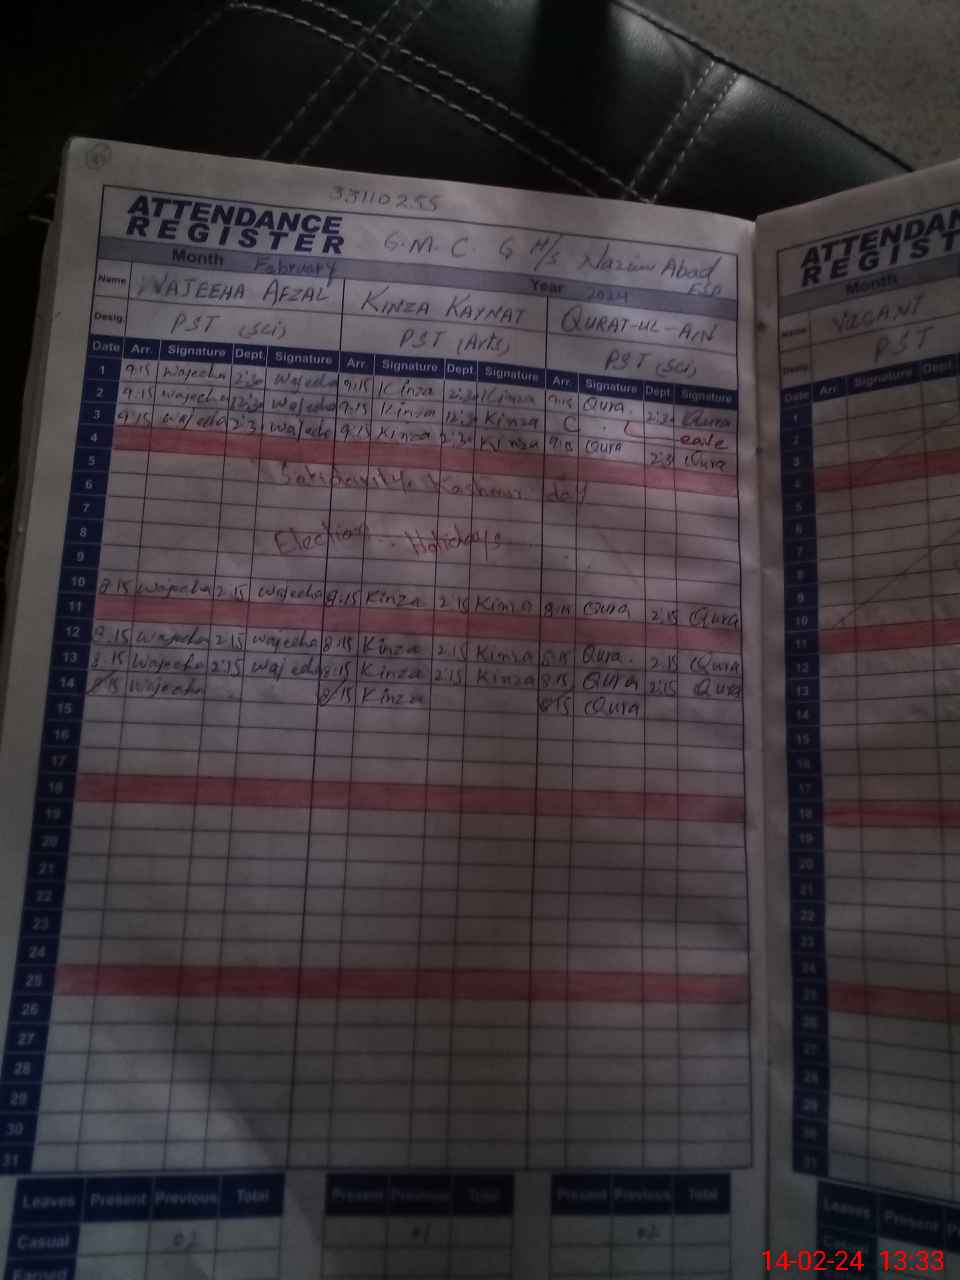 33110255
ATTENDANCE
REGISTER
G.M.C. G H/S Nazim Abad
FSD
Month February Year 2024
Name WAJEEHA AFZAL KINZA KAYNAT QURAT-UL-AIN
Desig. PST (Sci) PST (Arts) PST (Sci)
Date Arr. Signature Dept. Signature Arr. Signature Dept. Signature Arr. Signature Dept. Signature
1 9:15 Wajeeha 2:30 Wajeeha 9:15 Kinza 2:30 Kinza 9:15 Qura 2:30 Qura
2 9:15 Wajeeha 12:30 Wajeeha 9:15 Kinza 12:30 Kinza C. L eave
3 9:15 Wajeeha 2:3 Wajeeha 9:15 Kinza 2:30 Kinza 9:15 Qura 2:3 Qura
4
5 Kashmir day
6
7
8 Election Holidays
9
10 8:15 Wajeeha 2:15 Wajeeha 8:15 Kinza 2:15 Kinza 8:15 Qura 2:15 Qura
11
12 8:15 Wajeeha 2:15 Wajeeha 8:15 Kinza 2:15 Kinza 8:15 Qura 2:15 Qura
13 8:15 Wajeeha 2:15 Wajeeha 8:15 Kinza 2:15 Kinza 8:15 Qura 2:15 Qura
14 8:15 Wajeeha 8:15 Kinza 8:15 Qura
15
16
17
18
19
20
21
22
23
24
25
26
27
28
29
30
31
Leaves Present Previous Total Present Previous Total Present Previous Total
Casual 02 01 02
Earned
ATTENDAN
REGIST
Month
Name VACANT
Desig. PST
Date Arr. Signature Dept
1
2
3
4
5
6
7
8
9
10
11
12
13
14
15
16
17
18
19
20
21
22
23
24
25
26
27
28
29
30
31
Leaves Present P
14-02-24 13:33